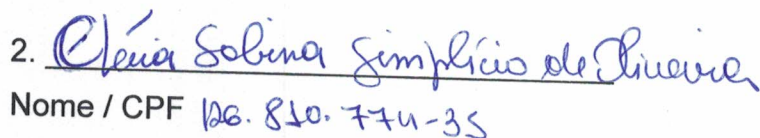 2. Clénia Sobina Simplício de Oliveira
Nome / CPF 126.810.774-35